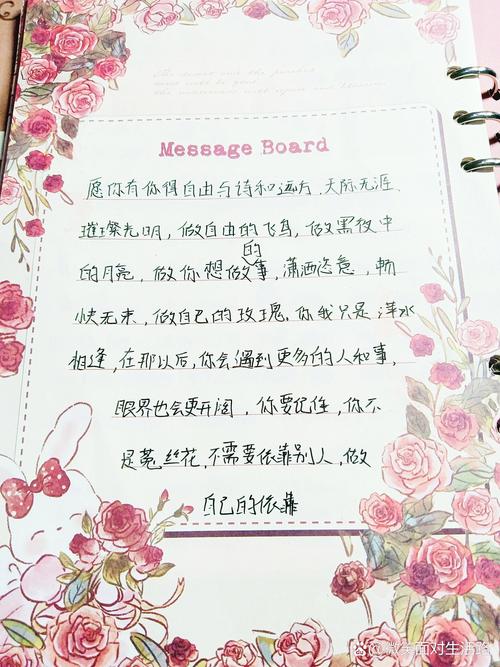 Message Board
愿你有你得自由与诗和远方、天际无涯、
璀璨光明，做自由的飞鸟，做黑夜中
的月亮，做你想做的事，潇洒恣意，畅
快无束，做自己的玫瑰。你我只是萍水
相逢，在那以后，你会遇到更多的人和事，
眼界也会更开阔，你要记住，你不
是菟丝花，不需要依靠别人，做
自己的依靠
@微笑面对生活路